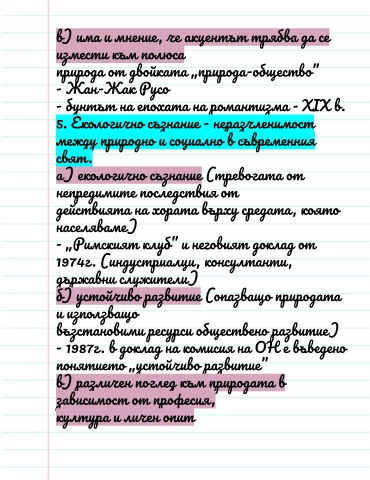 в) има и мнение, че акцентът трябва да се
измести към полюса
природа от двойката „природа-общество”
- Жан-Жак Русо
- бунтът на епохата на романтизма - XIX в.
5. Екологично съзнание - неразчленимост
между природно и социално в съвременния
свят.
а) екологично съзнание (тревогата от
непредимите последствия от
действията на хората върху средата, която
населяваме)
- „Римският клуб” и неговият доклад от
1974г. (индустриалци, консултанти,
държавни служители)
б) устойчиво развитие (опазващо природата
и използващо
възстановими ресурси обществено развитие)
- 1987г. в доклад на комисия на ОН е въведено
понятието „устойчиво развитие”
в) различен поглед към природата в
зависимост от професия,
култура и личен опит